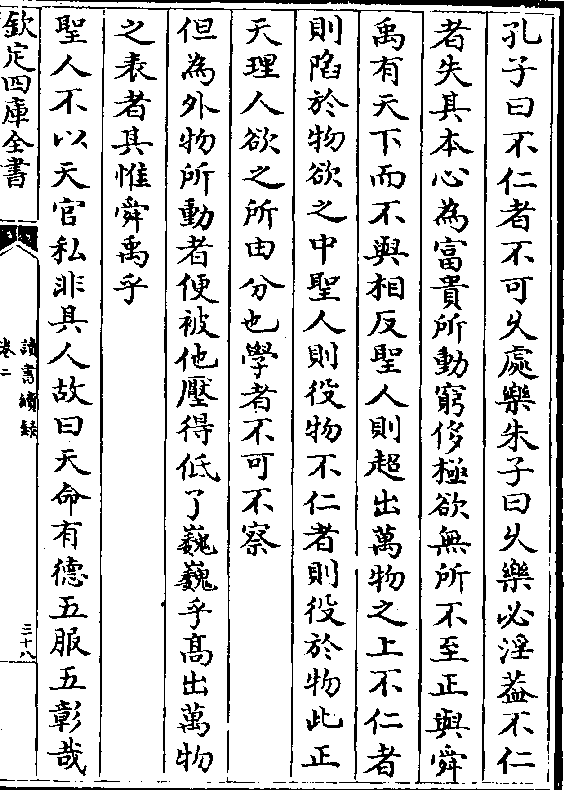 孔子曰不仁者不可乆處樂朱子曰乆樂必淫葢不仁
者失其本心為富貴所動窮侈極欲無所不至正與舜
禹有天下而不與相反聖人則超出萬物之上不仁者
則陷於物欲之中聖人則役物不仁者則役於物此正
天理人欲之所由分也學者不可不察
但為外物所動者便被他壓得低了巍巍乎髙出萬物
之表者其惟舜禹乎
聖人不以天官私非其人故曰天命有德五服五彰哉
欽定四庫全書
讀書續録
卷二
三十八